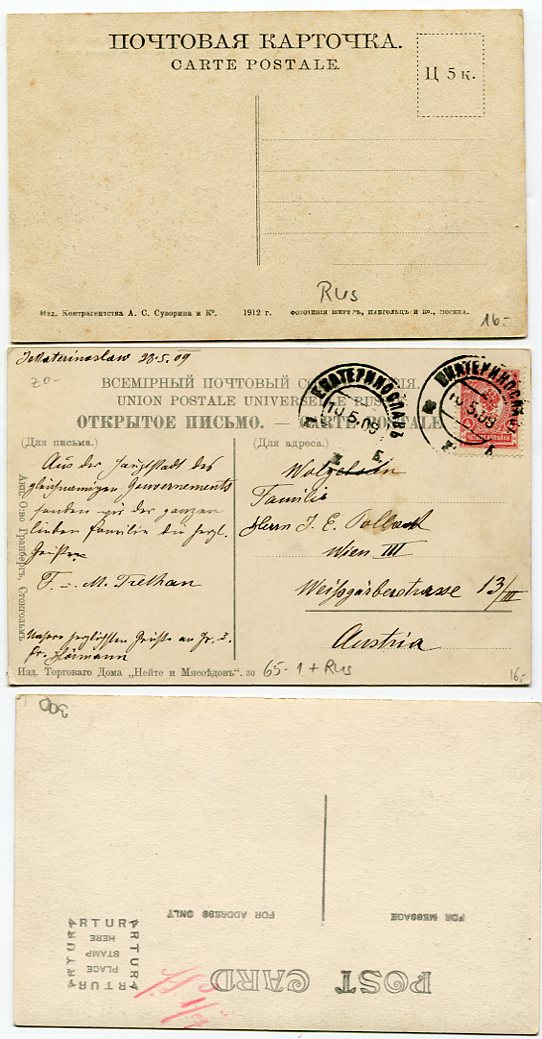 ПОЧТОВАЯ КАРТОЧКА.
CARTE POSTALE.
Ц 5 к.
Rus
Изд. Контрагентства А. С. Суворина и Кº.
1912 г.
ФОТОТИПІЯ ШЕРЕРЪ, НАБГОЛЬЦЪ И Ко., МОСКВА.
16.-
Jekaterinoslaw 23.5.09
20-
ВСЕМІРНЫЙ ПОЧТОВЫЙ СОЮЗЪ. РОССІЯ.
UNION POSTALE UNIVERSELLE. RUSSIE.
ОТКРЫТОЕ ПИСЬМО. — CARTE POSTALE
(Для письма.)
(Для адреса.)
ЕКАТЕРИНОСЛАВЪ
10.5.09
ЕКАТЕРИНОСЛАВЪ
10.5.09
Aus der Hauptstadt des
gleichnamigen Gouvernements
senden wir der ganzen
lieben Familie die herzl.
Grüsse
F. u. M. Trethan
Unsere herzlichsten Grüsse an Hr. u.
Fr. Hörmann
Familie
Herrn J. E. Pollack
Wien III
Weissgärberstrasse 13/III
Austria
Акц. О-во Гранбергъ, Стокгольмъ
Изд. Торговаго Дома „Нейте и Мясоѣдовъ". 30
65-1 + Rus
16.-
300
POST CARD
FOR MESSAGE
FOR ADDRESS ONLY
ARTURA
ARTURA
PLACE
STAMP
HERE
ARTURA
ARTURA